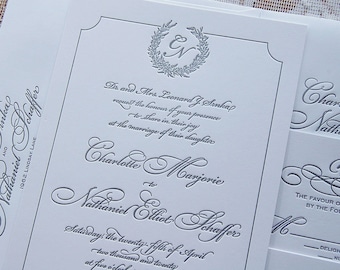 CN
Dr. and Mrs. Leonard J. Sonka
request the honour of your presence
to share in their joy
at the marriage of their daughter
Charlotte Marjorie
to
Nathaniel Elliot Schaffer
Saturday, the twenty-fifth of April
two thousand and twenty
and
Nathaniel Schaffer
Lane
Schaffer
THE FAVOUR O
BY THE FO
M
DELIGH